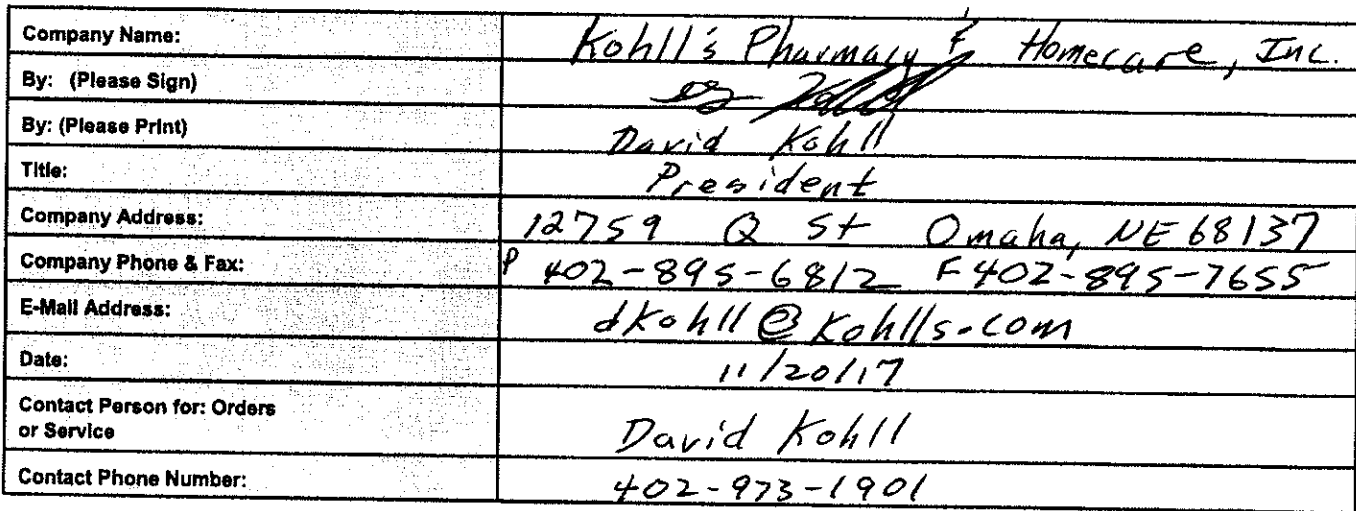 Company Name: Kohll's Pharmacy & Homecare, Inc.
By: (Please Sign)
By: (Please Print) David Kohll
Title: President
Company Address: 12759 Q St Omaha, NE 68137
Company Phone & Fax: P 402-895-6812 F 402-895-7655
E-Mail Address: dkohll@kohlls.com
Date: 11/20/17
Contact Person for: Orders
or Service David Kohll
Contact Phone Number: 402-973-1901